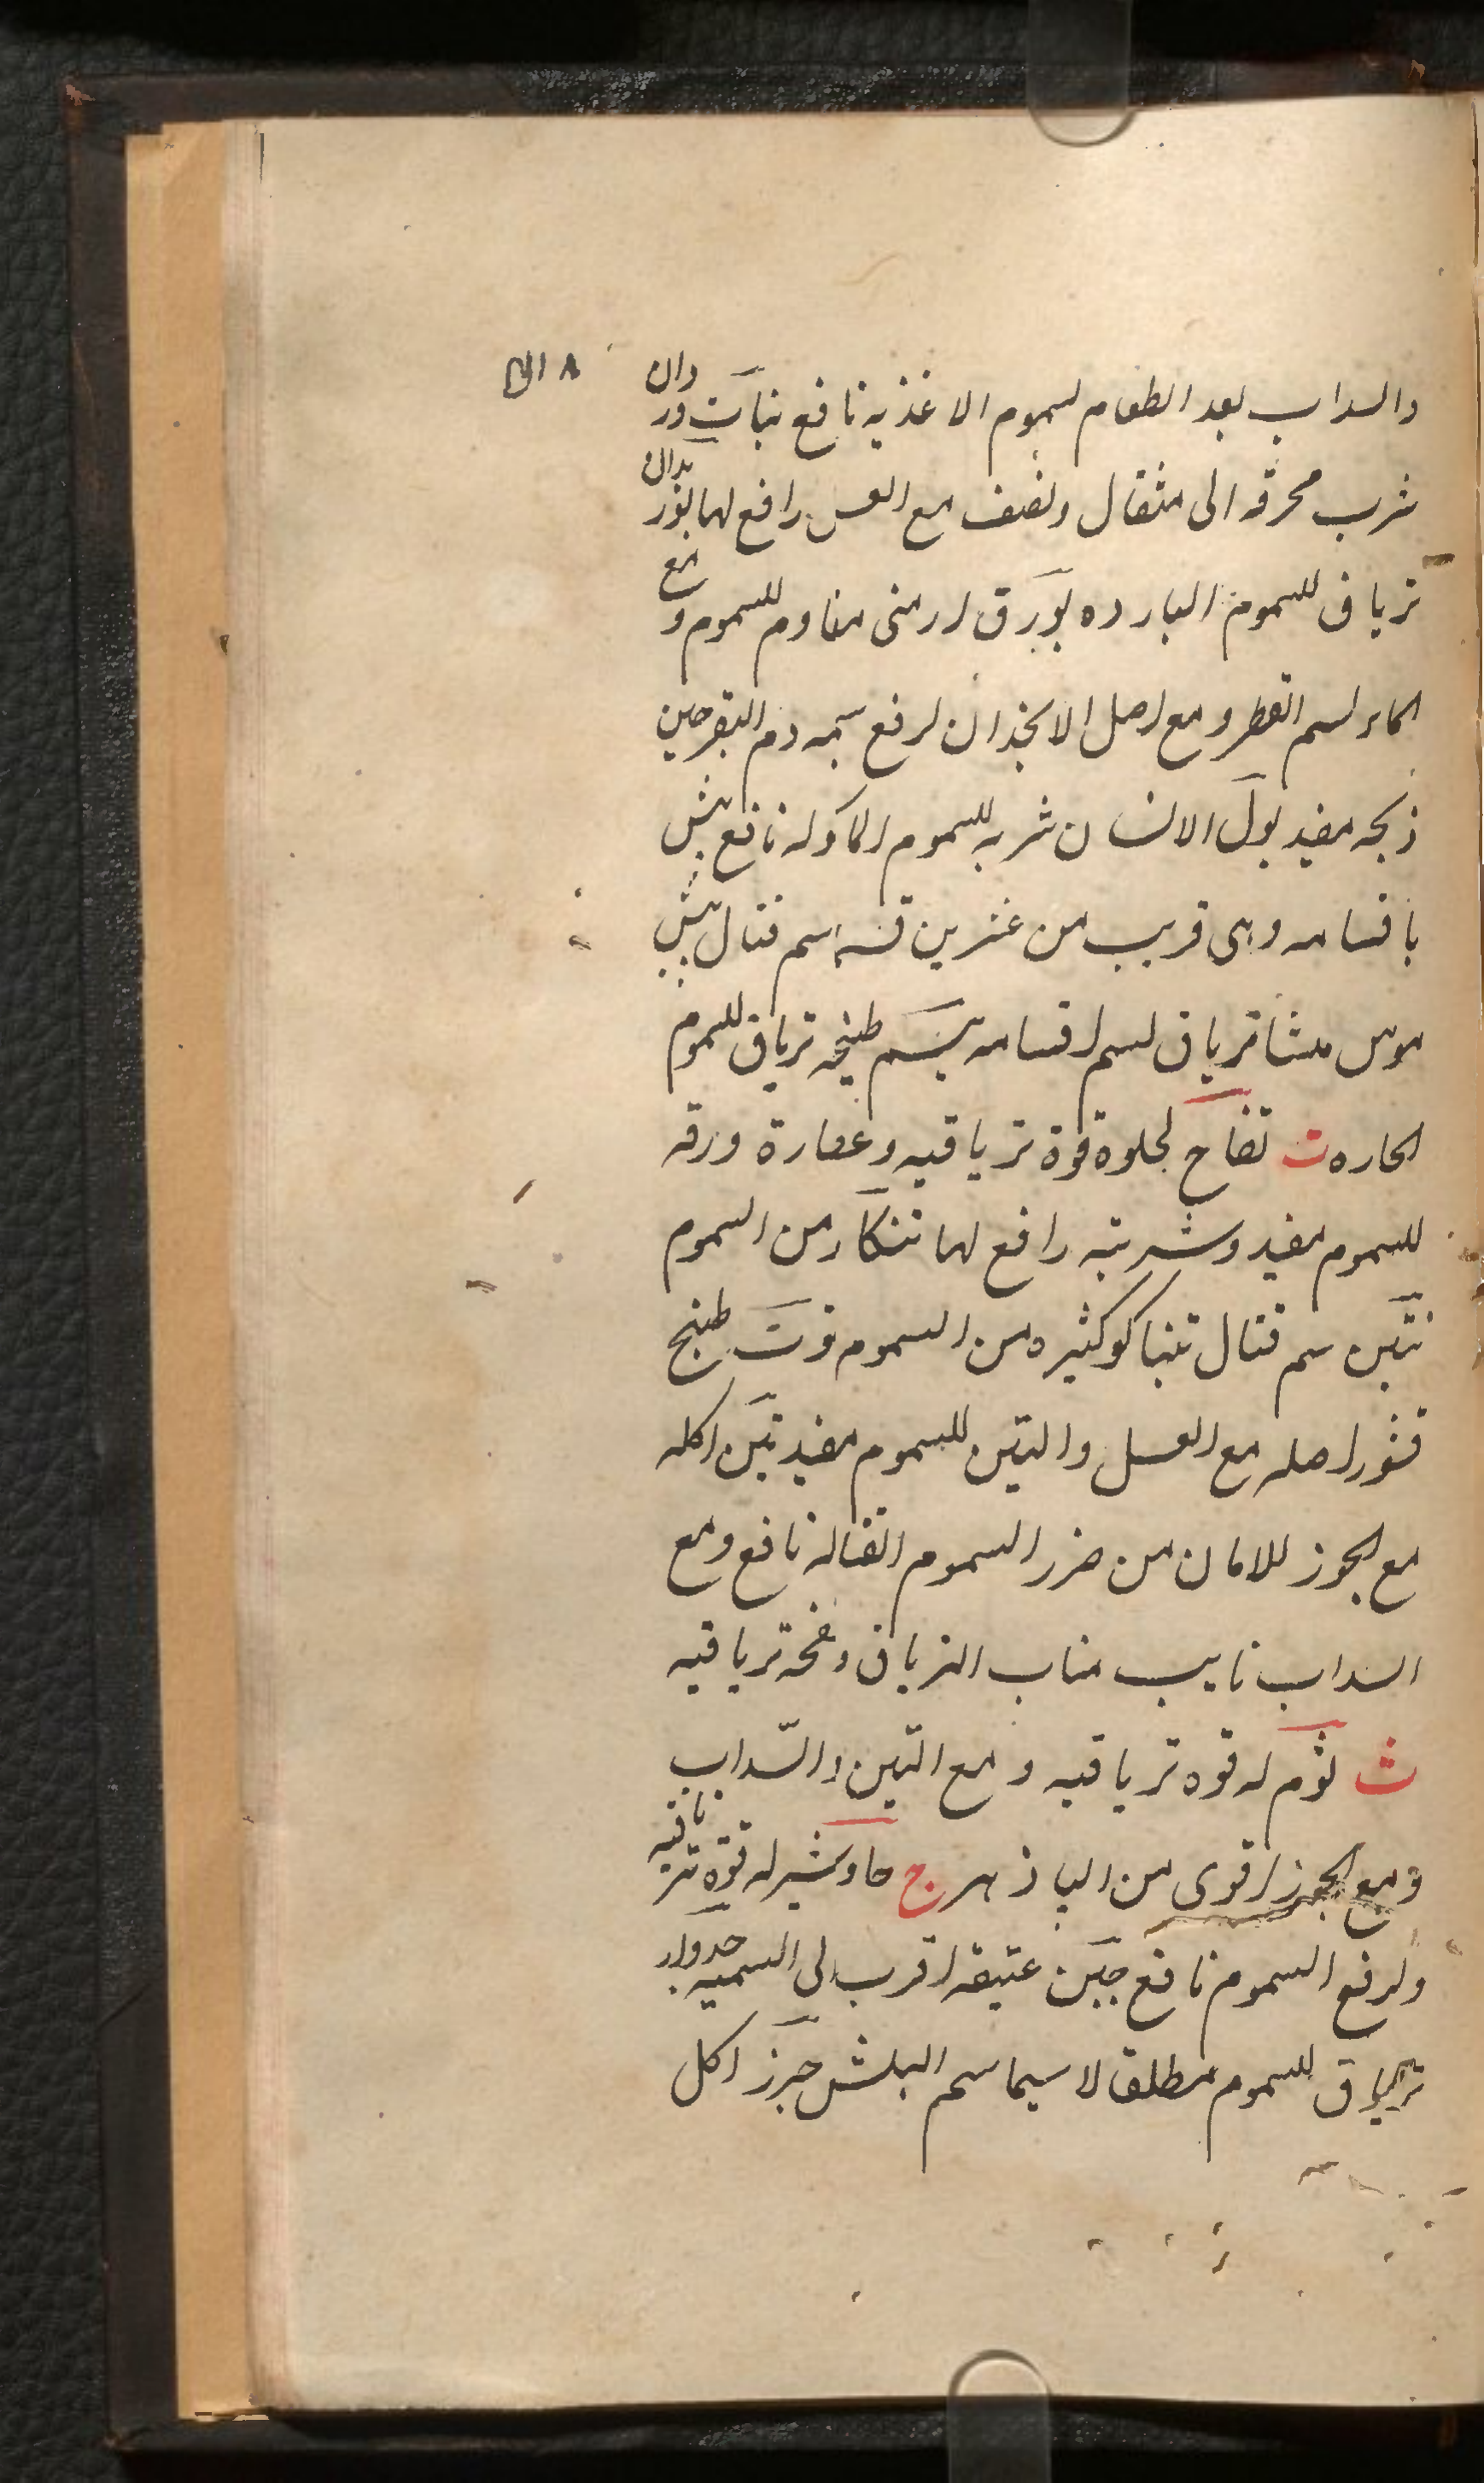 والسداب بعد الطعام لسموم الاغذیه نافع نبات وردان
شرب محرقه الی مثقال ونصف مع العسل رافع لها
تریاق للسموم البارده بورق ارمنی مقاوم للسموم و مع
الماء لسم الفطر و مع اصل الانجذان لرفع سمیه دم البقر حین
ذبحه مفید بول الانسان شربه للسموم الماکوله نافع بیش
باقسامه وهی قریب من عشرین قسما سم قتال بیش
موش تریاق لسم اقسامه طبیخه تریاق للسموم
الحاره ت تفاح لحلوه قوة تریاقیه و عصارة ورقه
للسموم مفید و شربته رافع لها تنکار من السموم
سم قتال تنباکو کثیره من السموم توت طبیخ
قشور اصله مع العسل والتین للسموم مفید تین اکله
مع الجوز للامان من ضرر السموم القتاله نافع و مع
السداب نایب مناب التریاق و تریاقیه
ث ثوم له قوه تریاقیه و مع التین والسّداب
و مع الجوز اقوی من البادزهر ج جاوشیر له قوّه تریاقیه
ولرفع السموم نافع جبن عتیقه اقرب الی السمیه جدوار
تریاق للسموم مطلقا لا سیما سم البیش جزر اکل